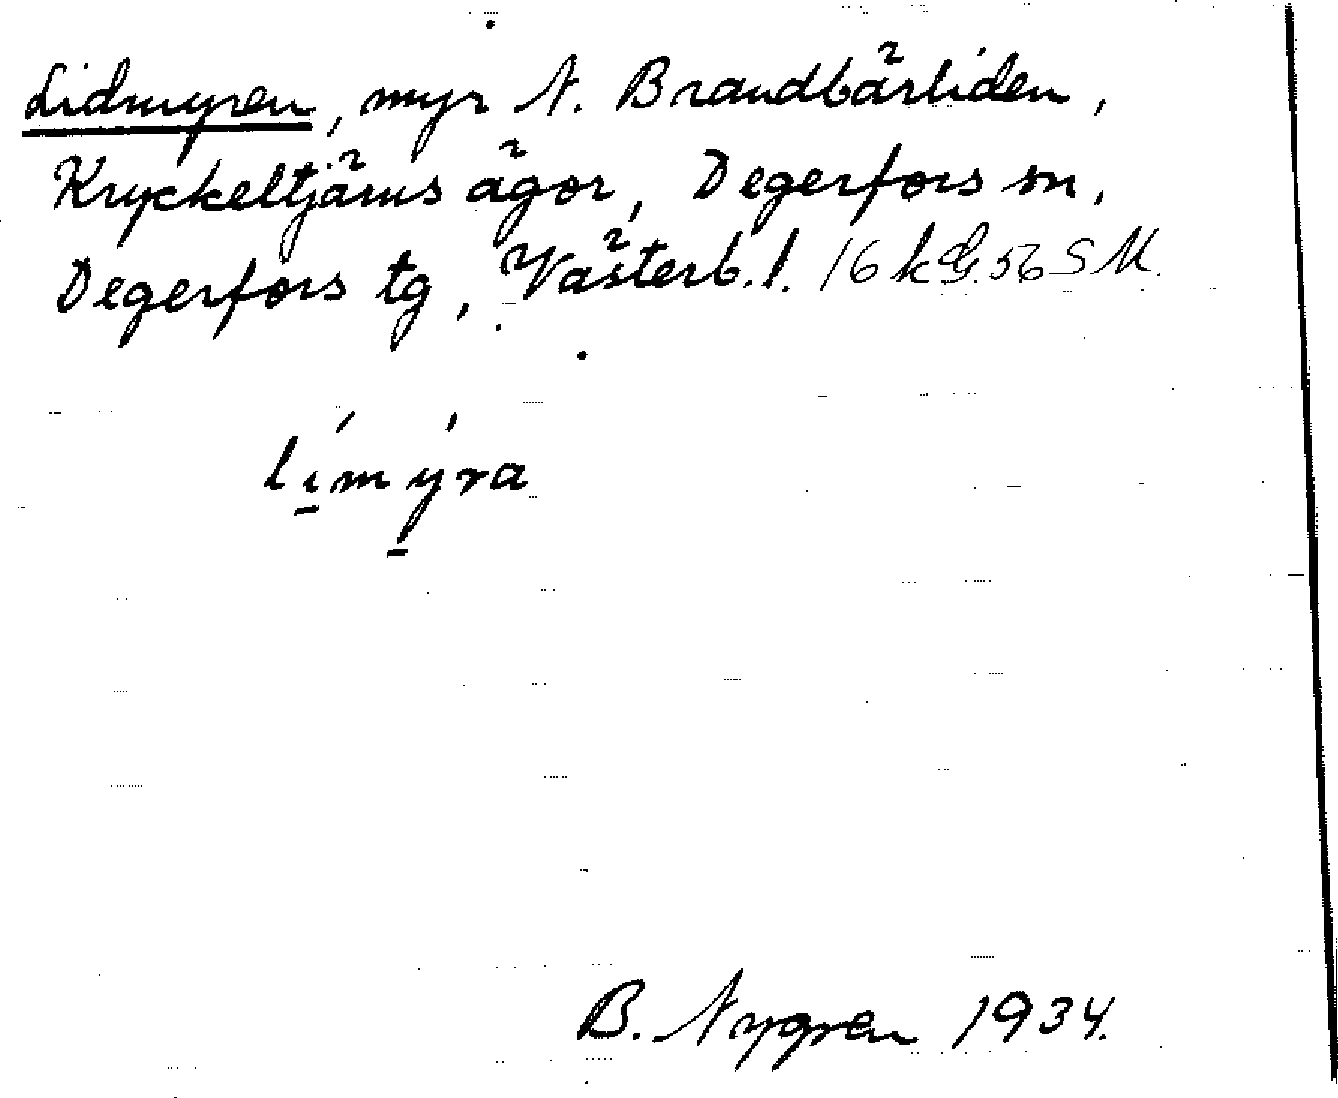 Lidmyren, myr N. Brandbärliden,
Kryckeltjärns ägor, Degerfors sn,
Degerfors tg, Västerb. l. 16 k G. 56 S M.
li̱´my̱´ra
B. Nygren 1934.